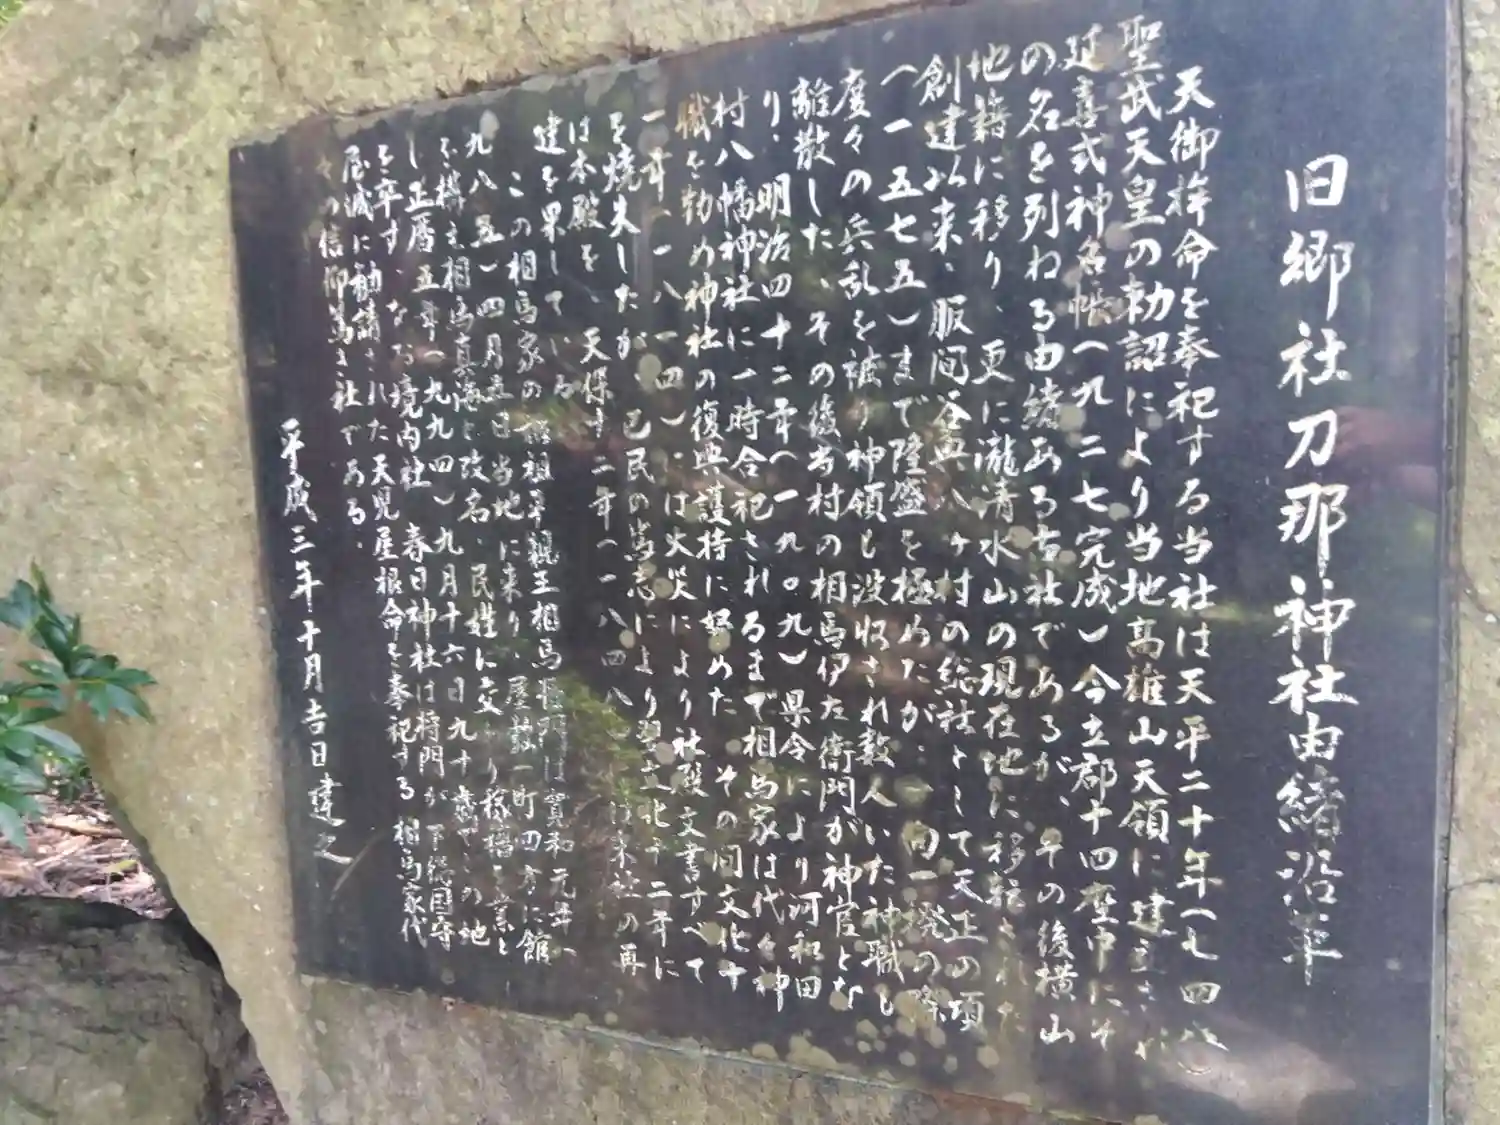 旧郷社刀那神社由緒沿革
天御桙命を奉祀する当社は天平二十年(七四八
聖武天皇の勅認により当地高雄山天領に建立され
延喜式神名帳(九二七完成)今立郡十四座中にそ
の名を列ねる由緒ある古社であるが、その後横山
地籍に移り、更に瀧清水山の現在地に移転された
創建以来、服間谷奥八ヶ村の総社として天正の頃
(一五七五)まで隆盛を極めたが、向一揆の際
度々の兵乱を被り神領も没収され数人いた神職も
離散した、その後当村の相馬伊左衛門が神官とな
り、明治四十二年(一九〇九)県令により河和田
村八幡神社に一時合祀されるまで相馬家は代々神
職を勤め神社の復興護持に努めた その間文化十
一年(一八一四)には火災により社殿文書すべて
を焼失したが、氏民の篤志により翌文化十二年に
は本殿を、天保十二年(一八四八)は末社の再
建を果している
この相馬家の祖平親王相馬将門は寛和元年(
九八五)四月 日当地に来り、屋敷一町四方に館
を構え相馬真 と改名、民姓に交 り稼穡 業と
し正暦五年(九九四)九月十六日九十歳でこの地
を卒す、なお境内社 春日神社は将門が下総国守
居城に勧請された天児屋根命を奉祀する相馬家代
々の信仰篤き社である.
平成三年十月吉日建之